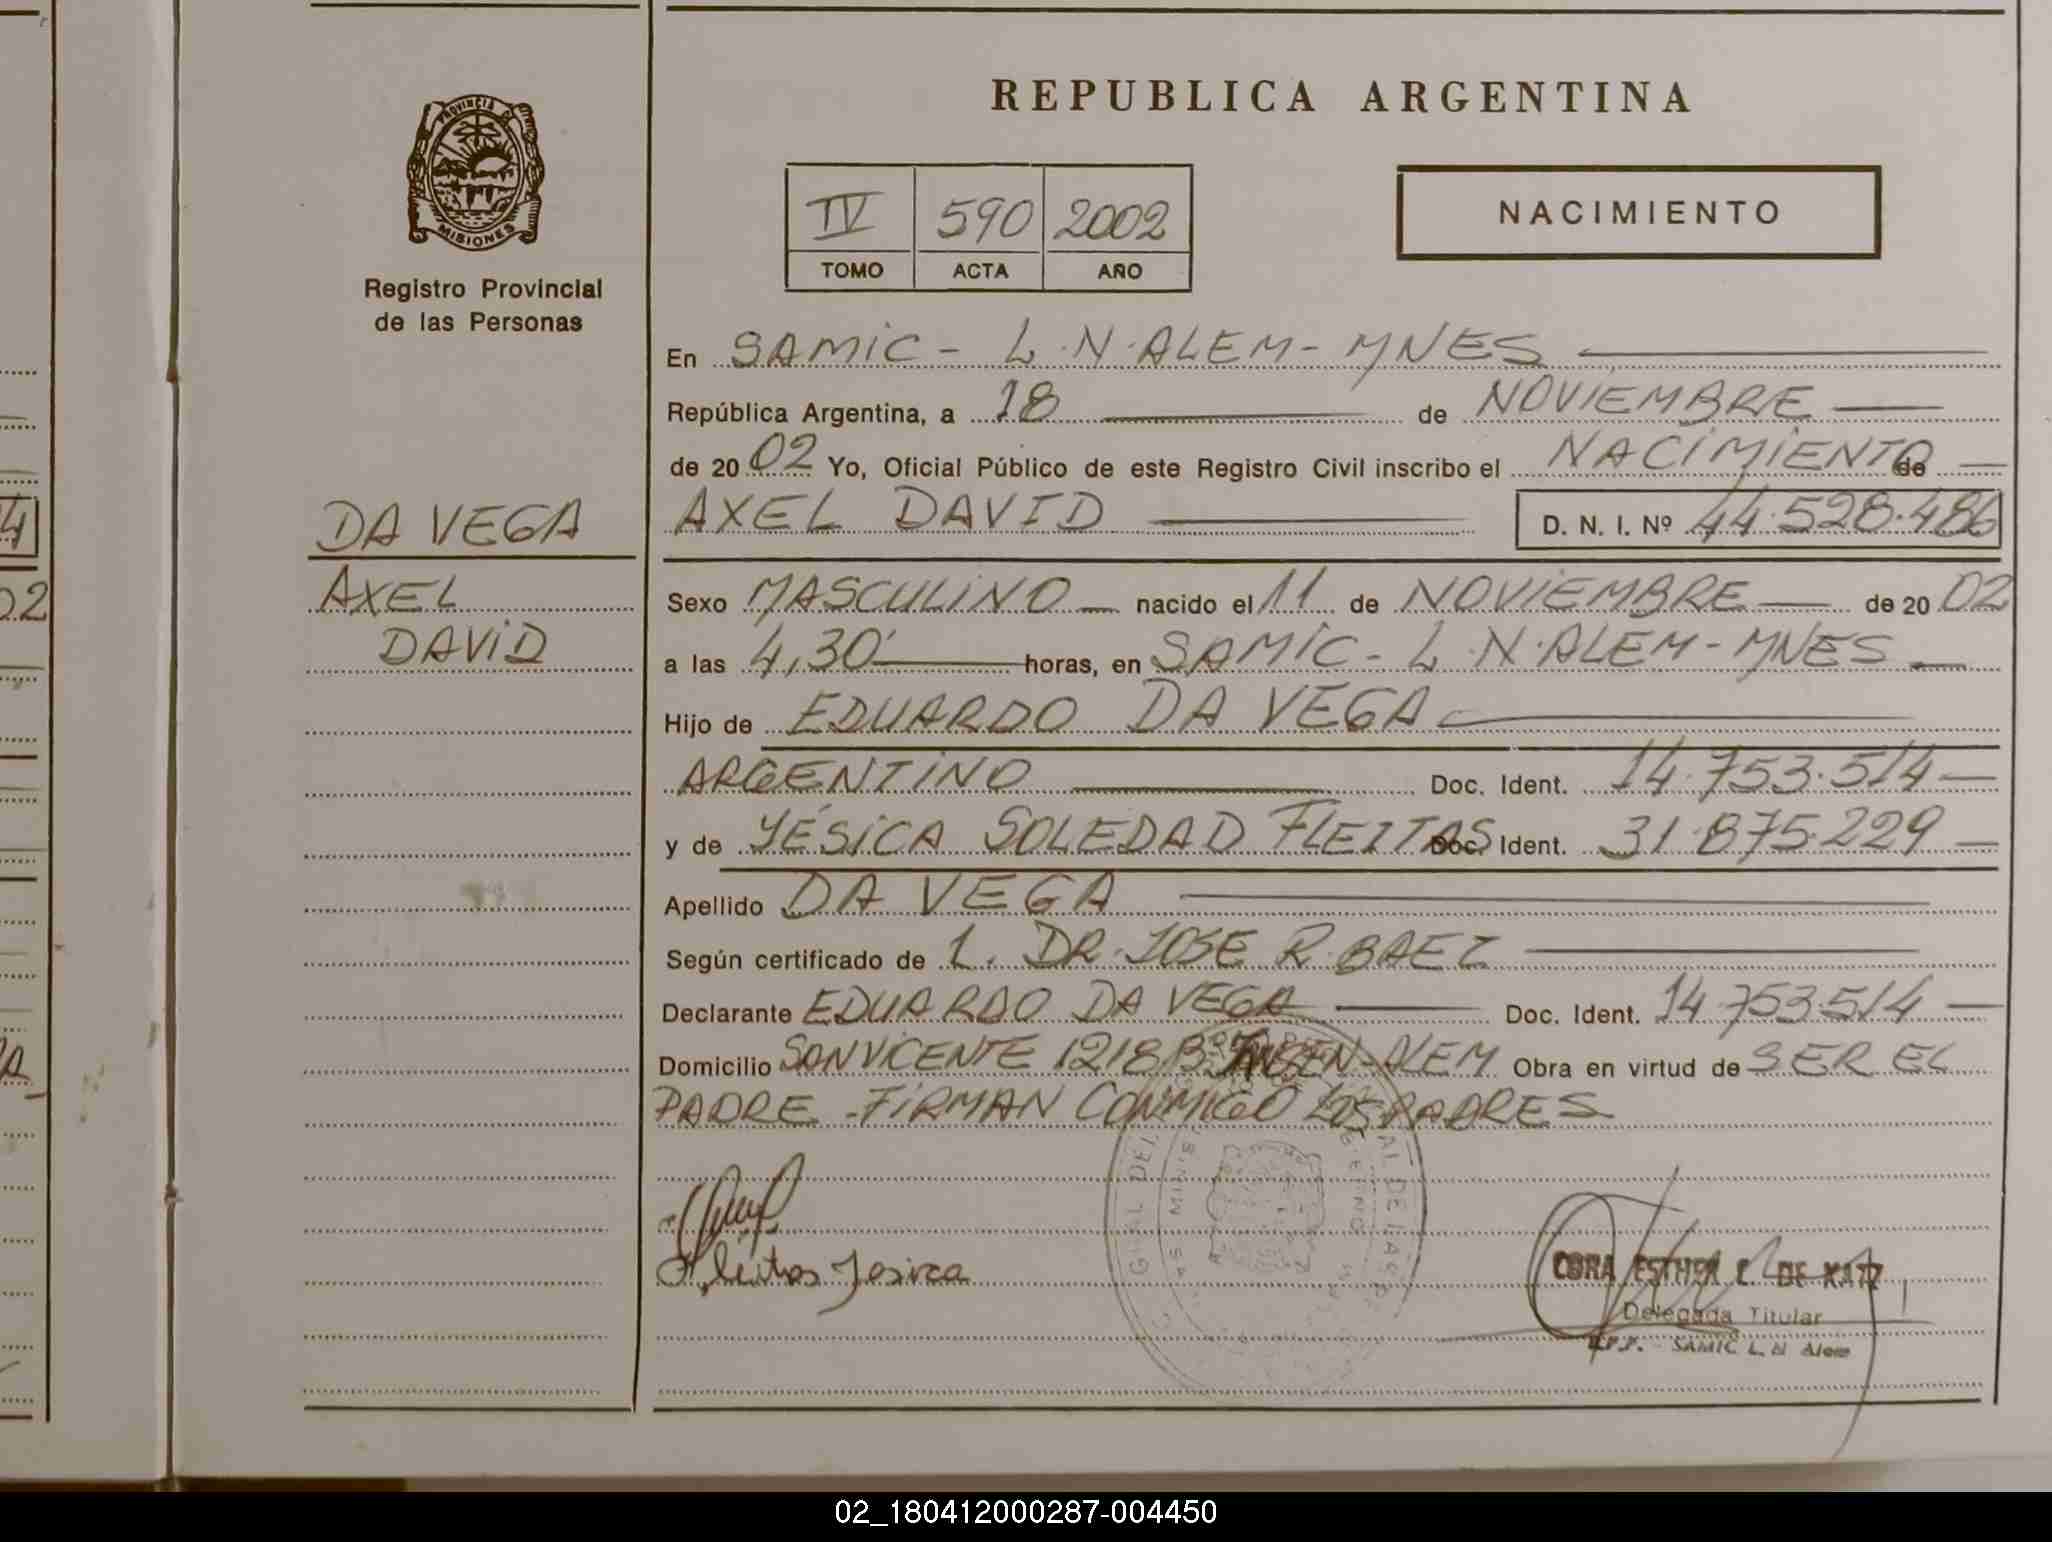 REPUBLICA ARGENTINA
PROVINCIA DE
MISIONES
Registro Provincial
de las Personas
IV 590 2002
TOMO ACTA AÑO
NACIMIENTO
En SAMIC - L.N.ALEM - MNES
República Argentina, a 18 de NOVIEMBRE
de 20 02 Yo, Oficial Público de este Registro Civil inscribo el NACIMIENTO de
DA VEGA
AXEL
DAVID
AXEL DAVID D. N. I. Nº 44.528.486
Sexo MASCULINO nacido el 11 de NOVIEMBRE de 20 02
a las 4,30 horas, en SAMIC - L.N.ALEM - MNES
Hijo de EDUARDO DA VEGA
ARGENTINO Doc. Ident. 14.753.514
y de YÉSICA SOLEDAD FLEITAS Doc. Ident. 31.875.229
Apellido DA VEGA
Según certificado de L. DR. JOSE R. BAEZ
Declarante EDUARDO DA VEGA Doc. Ident. 14.753.514
Domicilio SAN VICENTE 1218 Bº - ALEM Obra en virtud de SER EL
PADRE - FIRMAN CONMIGO LOS PADRES
Fleitas Jesica
ESTHER DE KATZ
Delegada Titular
SAMIC L. N Alem
02_180412000287-004450